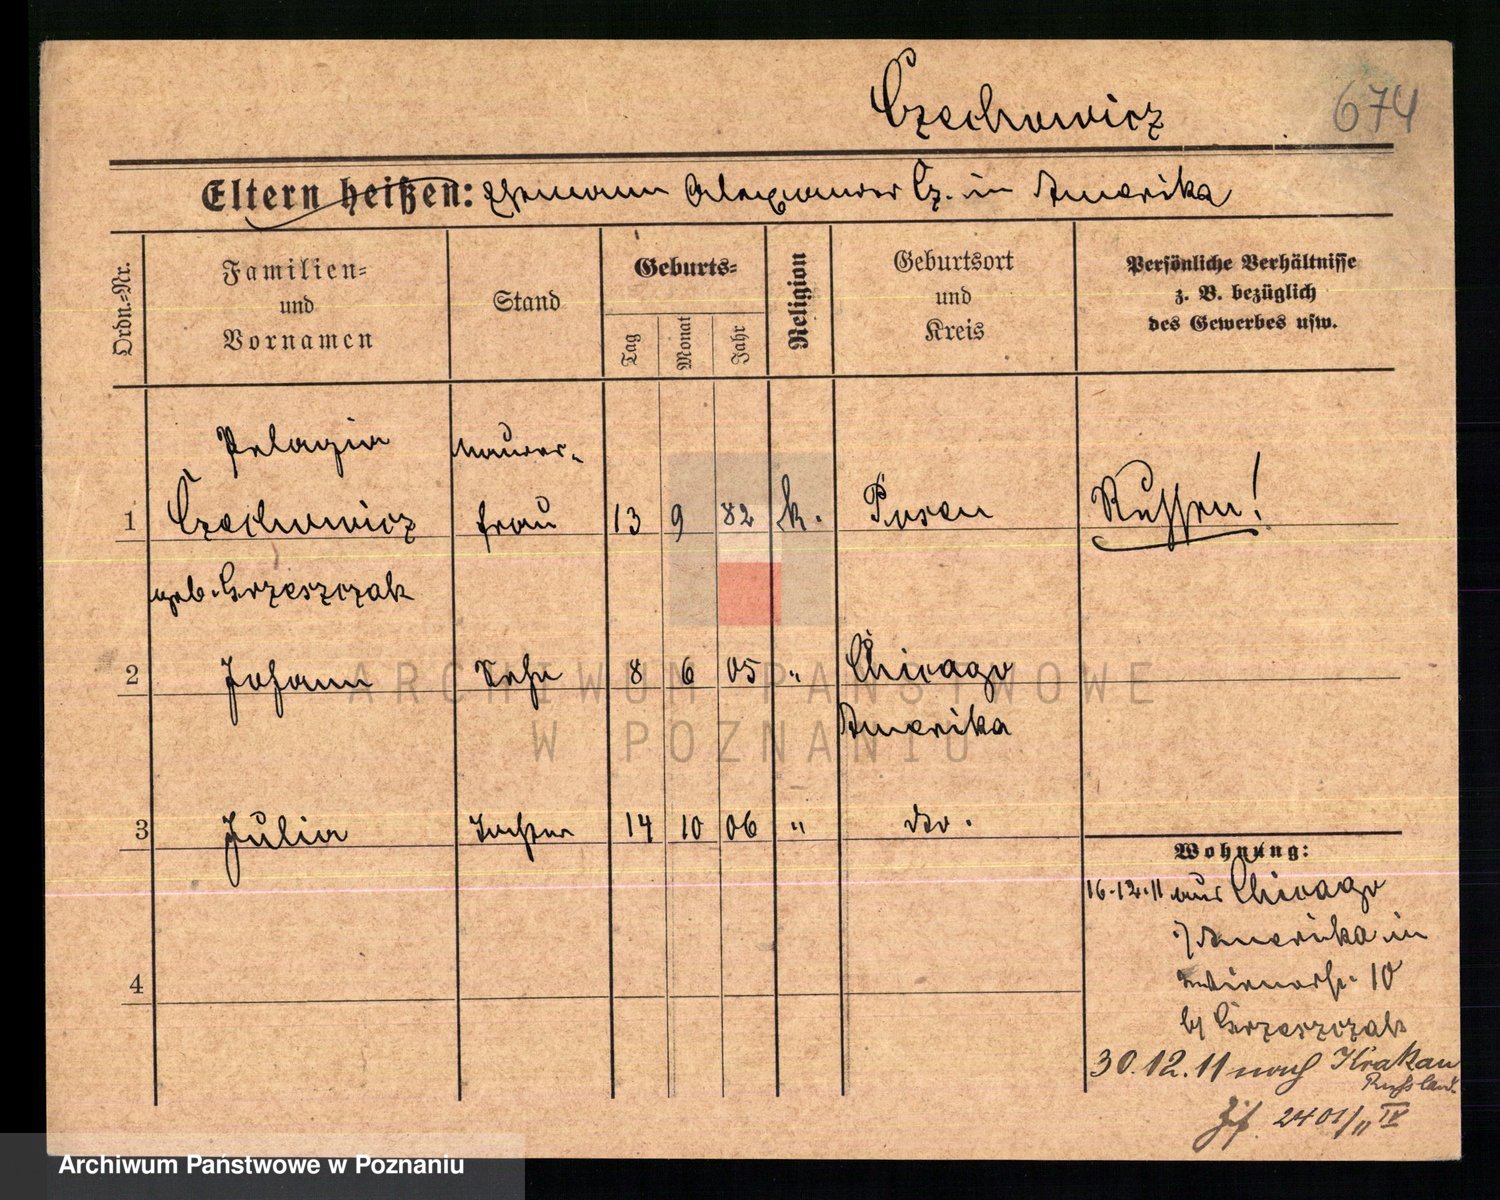 Czechowicz
674
Eltern heißen: Ehemann Alexander Cz. in Amerika
Ordn.-Nr.
Familien-
und
Vornamen
Stand
Geburts-
Tag
Monat
Jahr
Religion
Geburtsort
und
Kreis
Persönliche Verhältnisse
z. B. bezüglich
des Gewerbes usw.
Pelagia
Maurer-
1 Czechowicz frau 13 9 82 k. Posen Russen!
geb. Grzeszczak
2 Johann Sohn 8 6 05 " Chicago
Amerika
3 Julia Tochter 14 10 06 " dto.
4
Wohnung:
16.12.11 aus Chicago
Amerika in
10
b/ Grzeszczak
30.12.11 nach Krakau
Russland.
2401/11 IV
ARCHIWUM PAŃSTWOWE
W POZNANIU
Archiwum Państwowe w Poznaniu